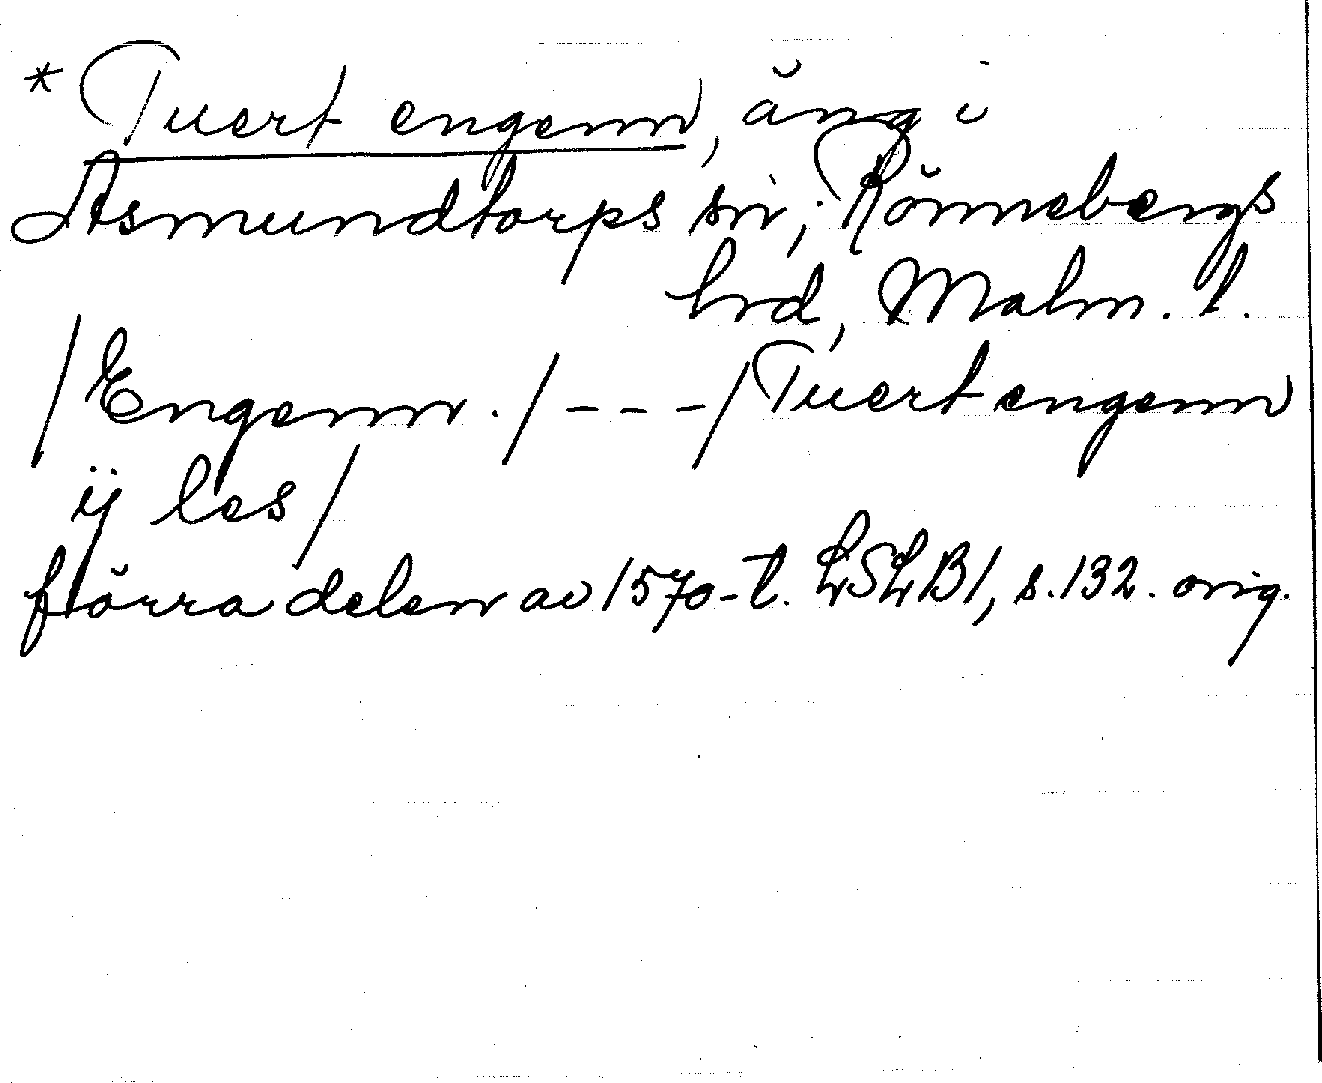 * Tuert engenn, äng i
Asmundtorps sn, Rönnebergs
hrd, Malm. l.
/Engenn./ - - - /Tuert engenn
ij les/
förra delen av 1570-t. LSLB1, s.132. orig.